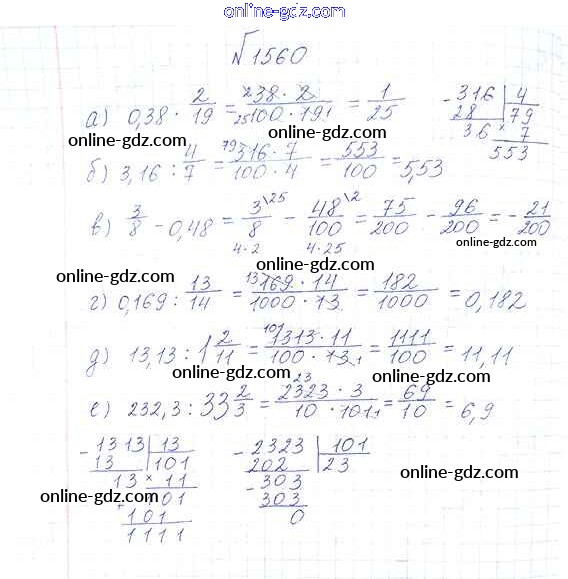 online-gdz.com
№1560
а) 0,38 · 2/19 = 38 · 2/100 · 19 = 1/25
316 | 4
28 79
36 × 7
553
online-gdz.com
online-gdz.com
б) 3,16 : 4/7 = 316 · 7/100 · 4 = 553/100 = 5,53
online-gdz.com
в) 3/8 - 0,48 = 3\25/8 - 48\2/100 = 75/200 - 96/200 = -21/200
4·2 4·25
online-gdz.com
online-gdz.com
online-gdz.com
г) 0,169 : 13/14 = 169 · 14/1000 · 13 = 182/1000 = 0,182
online-gdz.com
д) 13,13 : 1 2/11 = 1313 · 11/100 · 13 = 1111/100 = 11,11
online-gdz.com
online-gdz.com
е) 232,3 : 33 2/3 = 2323 · 3/10 · 101 = 69/10 = 6,9
- 1313 | 13
13 101
13 × 11
+ 101
101
1111
- 2323 | 101
202 23
- 303
303
0
online-gdz.com
online-gdz.com